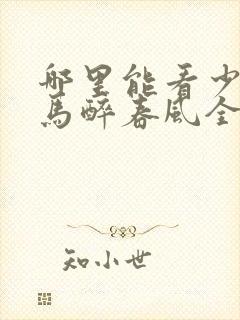 哪里能看少
馬醉春風全
知小世